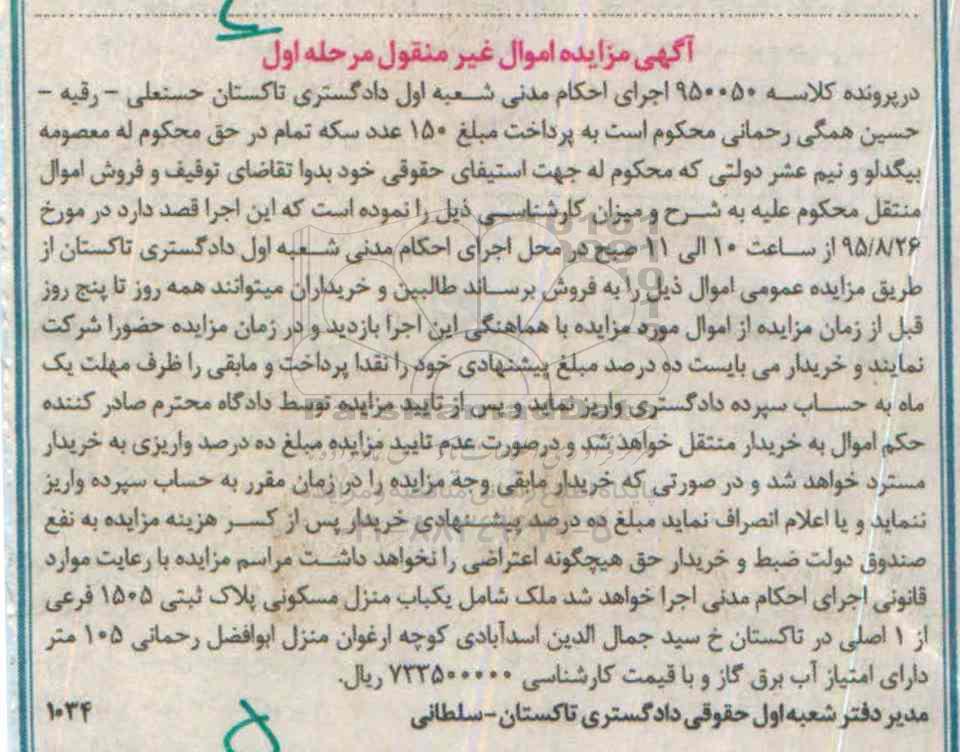 آگهی مزایده اموال غیر منقول مرحله اول
درپرونده کلاسه ۹۵۰۰۵۰ اجرای احکام مدنی شعبه اول دادگستری تاکستان حسنعلی - رقیه -
حسین همگی رحمانی محکوم است به پرداخت مبلغ ۱۵۰ عدد سکه تمام در حق محکوم له معصومه
بیگدلو و نیم عشر دولتی که محکوم له جهت استیفای حقوقی خود بدوا تقاضای توقیف و فروش اموال
منتقل محکوم علیه به شرح و میزان کارشناسی ذیل را نموده است که این اجرا قصد دارد در مورخ
۹۵/۸/۲۶ از ساعت ۱۰ الی ۱۱ صبح در محل اجرای احکام مدنی شعبه اول دادگستری تاکستان از
طریق مزایده عمومی اموال ذیل را به فروش برساند طالبین و خریداران میتوانند همه روز تا پنج روز
قبل از زمان مزایده از اموال مورد مزایده با هماهنگی این اجرا بازدید و در زمان مزایده حضورا شرکت
نمایند و خریدار می بایست ده درصد مبلغ پیشنهادی خود را نقدا پرداخت و مابقی را ظرف مهلت یک
ماه به حساب سپرده دادگستری واریز نماید و پس از تایید مزایده توسط دادگاه محترم صادر کننده
حکم اموال به خریدار منتقل خواهد شد و درصورت عدم تایید مزایده مبلغ ده درصد واریزی به خریدار
مسترد خواهد شد و در صورتی که خریدار مابقی وجه مزایده را در زمان مقرر به حساب سپرده واریز
ننماید و یا اعلام انصراف نماید مبلغ ده درصد پیشنهادی خریدار پس از کسر هزینه مزایده به نفع
صندوق دولت ضبط و خریدار حق هیچگونه اعتراضی را نخواهد داشت مراسم مزایده با رعایت موارد
قانونی اجرای احکام مدنی اجرا خواهد شد ملک شامل یکباب منزل مسکونی پلاک ثبتی ۱۵۰۵ فرعی
از ۱ اصلی در تاکستان خ سید جمال الدین اسدآبادی کوچه ارغوان منزل ابوافضل رحمانی ۱۰۵ متر
دارای امتیاز آب برق گاز و با قیمت کارشناسی ۷۳۳۵۰۰۰۰۰ ریال.
مدیر دفتر شعبه اول حقوقی دادگستری تاکستان-سلطانی ۱۰۳۴